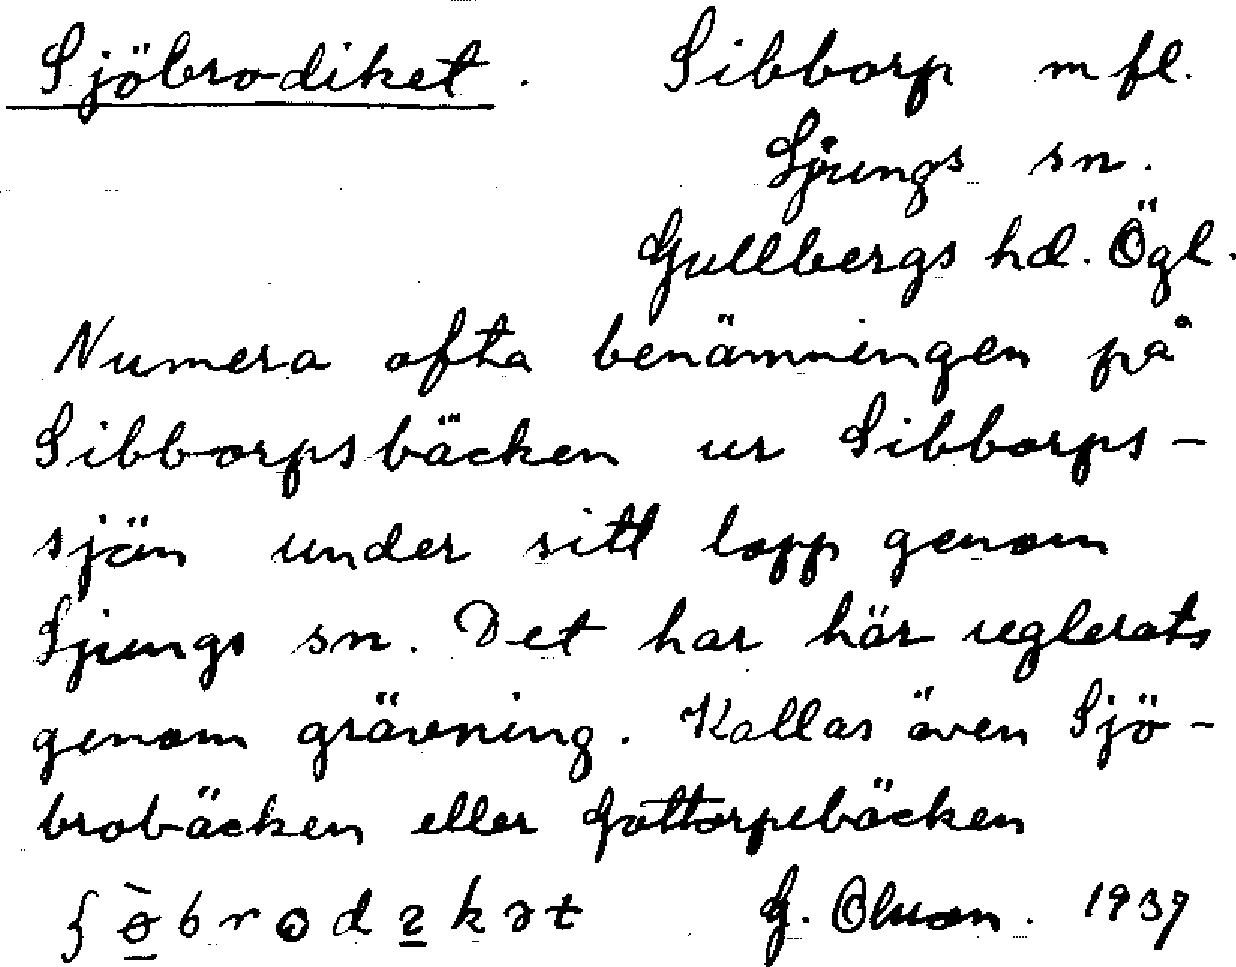 Sjöbrodiket. Sibborp mfl.
Ljungs sn.
Gullbergs hd. Ögl.
Numera ofta benämningen på
Sibborpsbäcken ur Sibborps-
sjön under sitt lopp genom
Ljungs sn. Det har här reglerats
genom grävning. Kallas även Sjö-
brobäcken eller Gottorpebäcken
G. Olsson. 1937